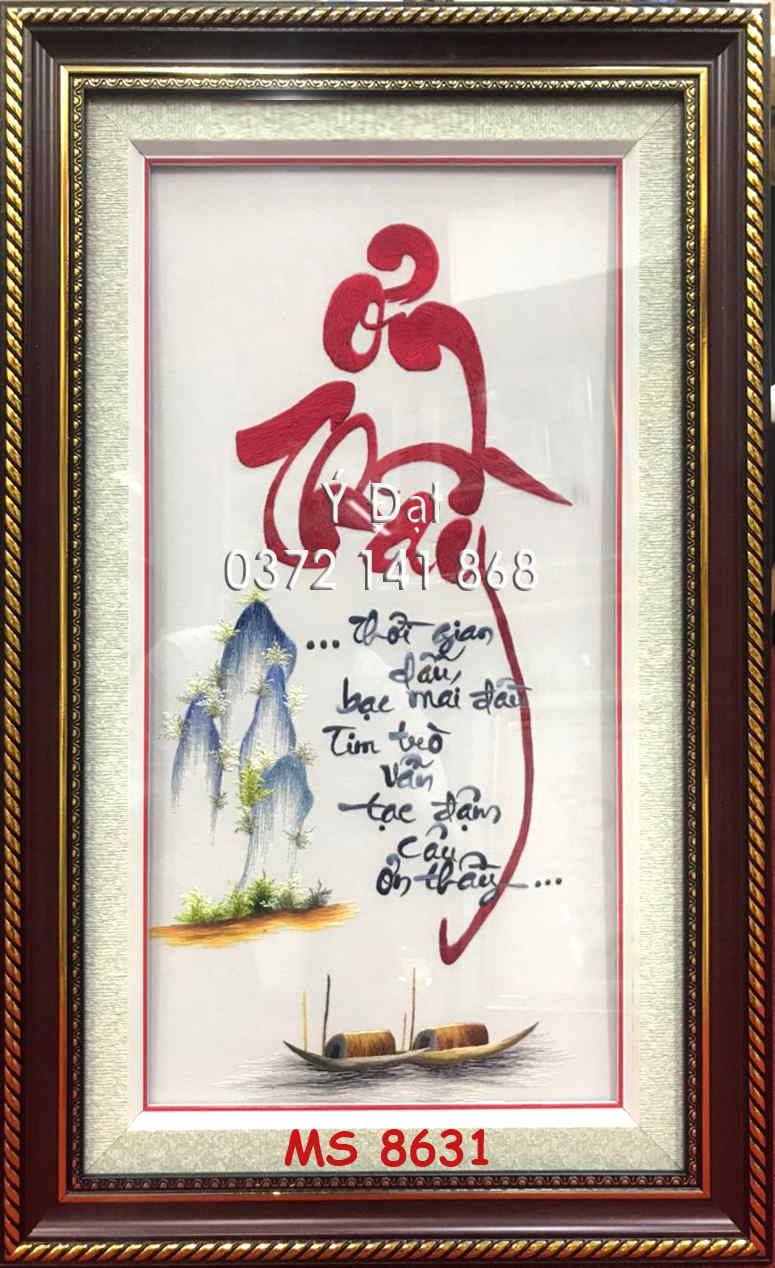 Ơn
Thầy
Ý Đạt
0372 141 868
... thời gian
dẫu
bạc mái đầu
Tim trò
vẫn
tạc đậm
câu
ơn thầy ...
MS 8631